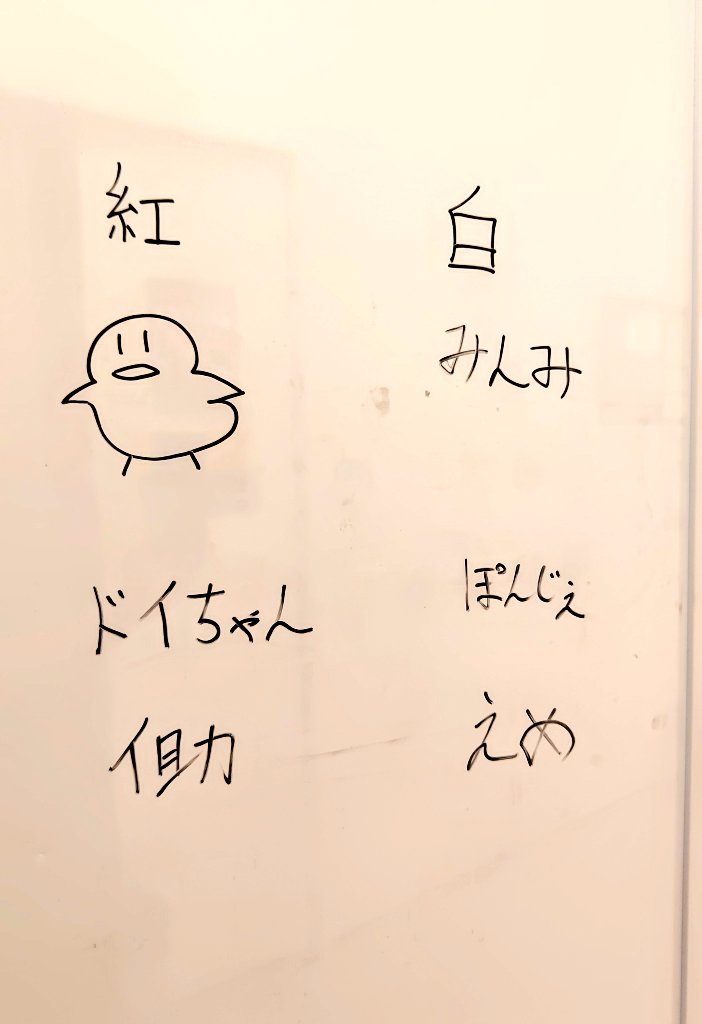 紅
ドイちゃん
白
みんみ
ぽんじぇ
えめ